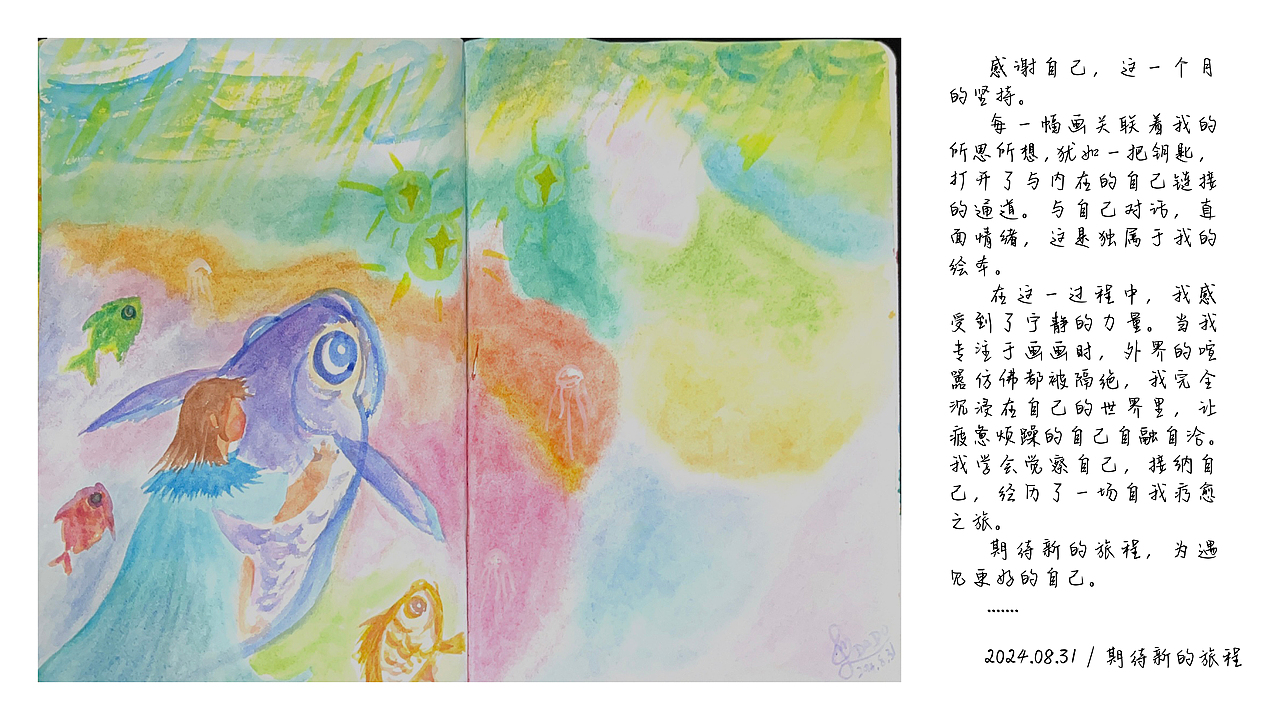 感谢自己，这一个月
的坚持。
每一幅画关联着我的
所思所想，犹如一把钥匙，
打开了与内在的自己链接
的通道。与自己对话，直
面情绪，这是独属于我的
绘本。
在这一过程中，我感
受到了宁静的力量。当我
专注于画画时，外界的喧
嚣仿佛都被隔绝，我完全
沉浸在自己的世界里，让
疲惫烦躁的自己自融自洽。
我学会觉察自己，接纳自
己，经历了一场自我疗愈
之旅。
期待新的旅程，为遇
见更好的自己。
.......
2024.08.31 / 期待新的旅程